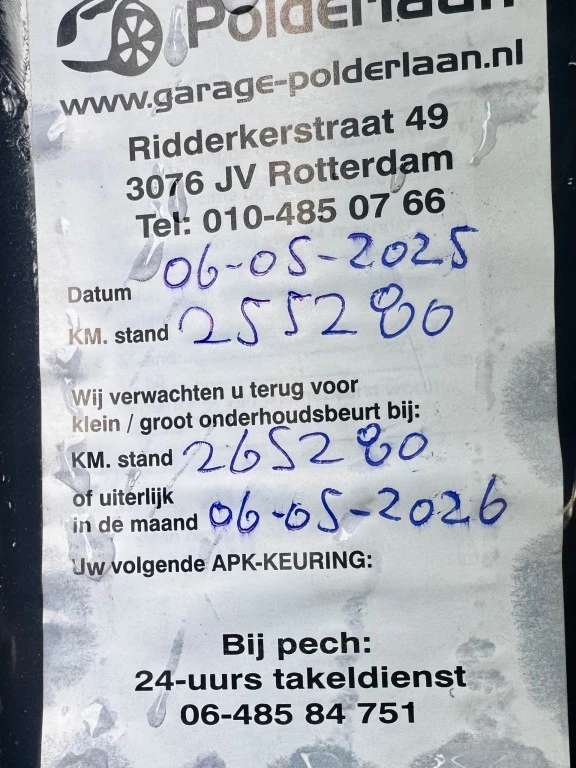 Polderlaan
www.garage-polderlaan.nl
Ridderkerstraat 49
3076 JV Rotterdam
Tel: 010-485 07 66
Datum 06-05-2025
KM. stand 255280
Wij verwachten u terug voor
klein / groot onderhoudsbeurt bij:
KM. stand 265280
of uiterlijk
in de maand 06-05-2026
Uw volgende APK-KEURING:
Bij pech:
24-uurs takeldienst
06-485 84 751